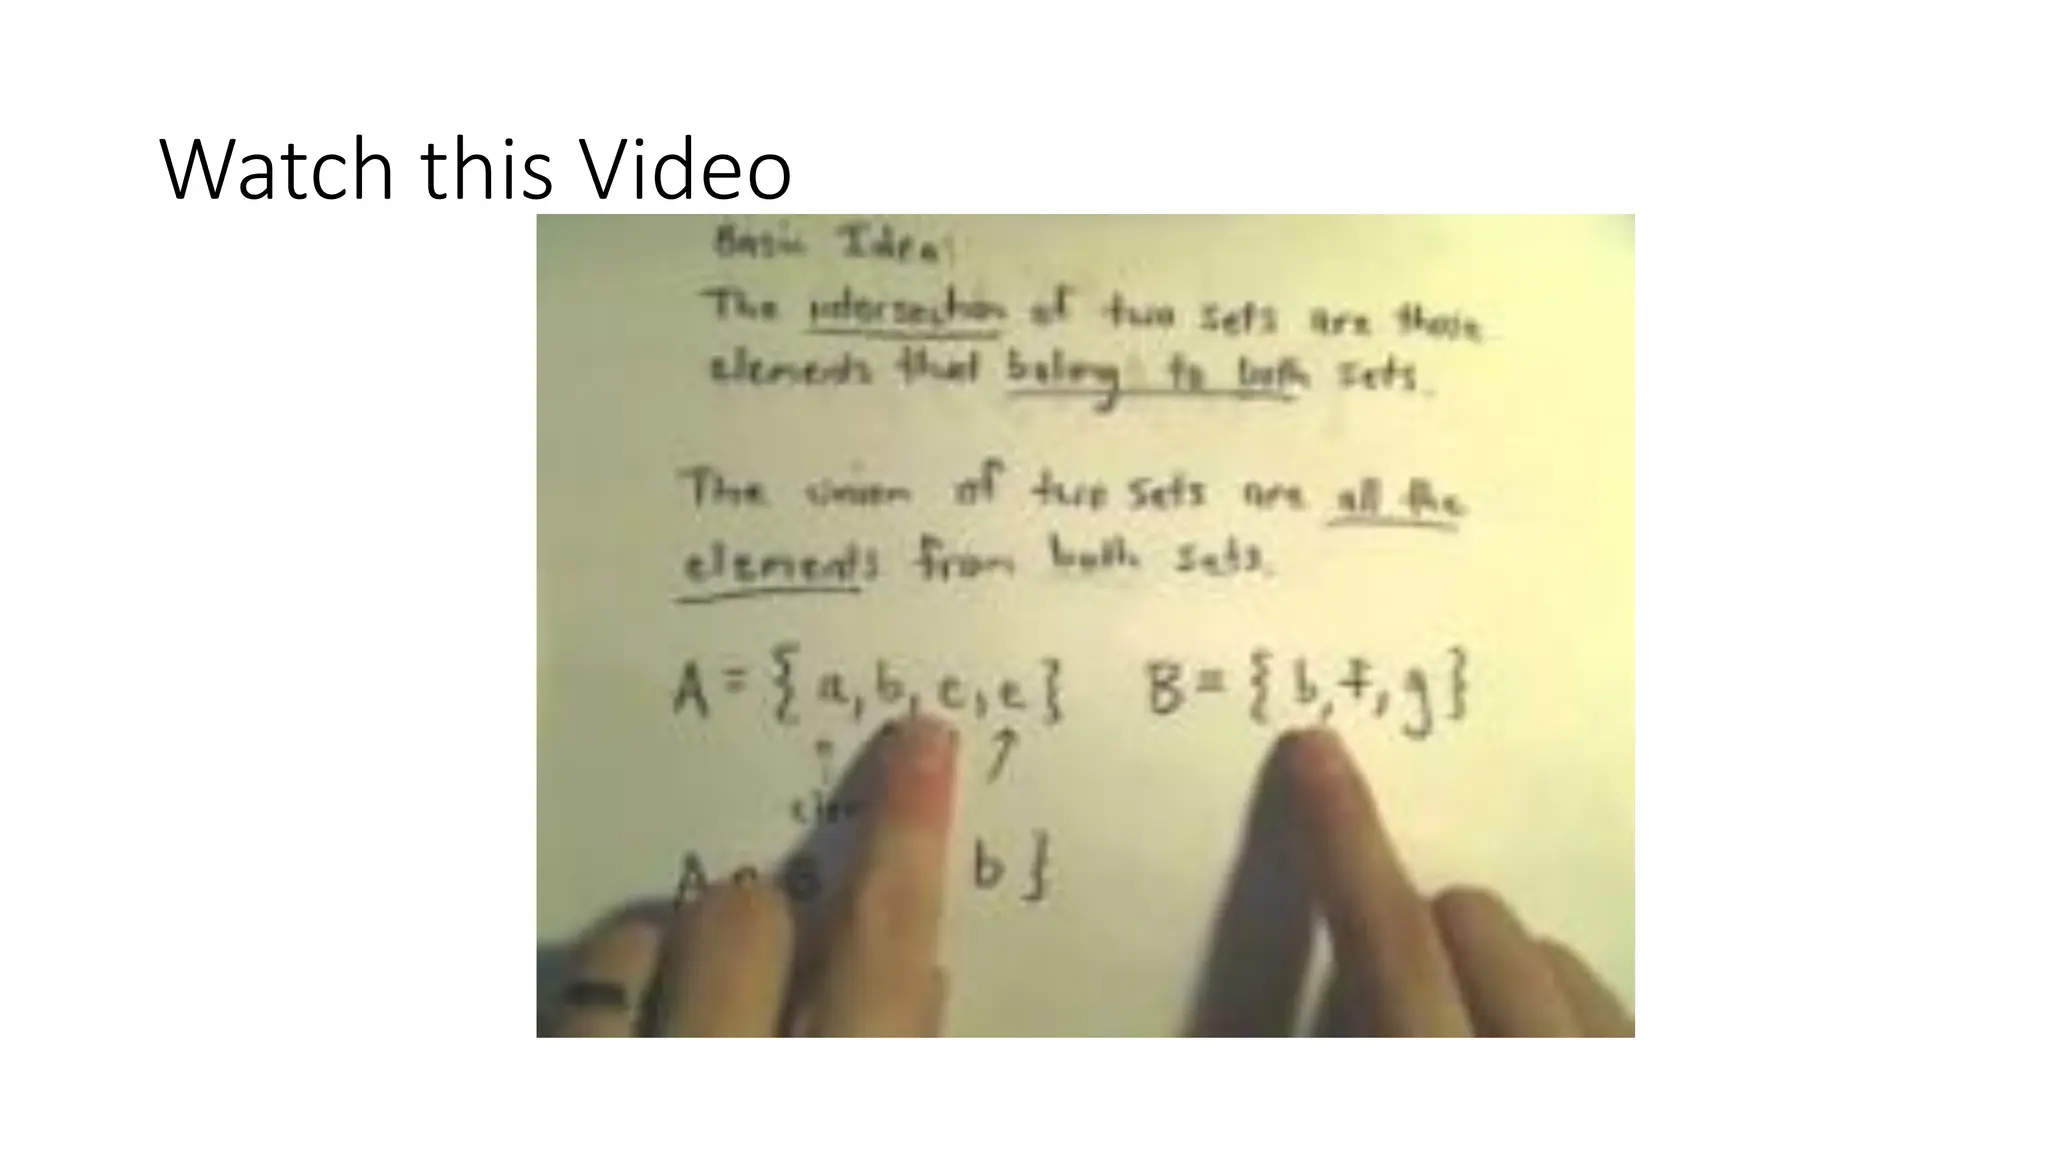 Watch this Video
Basic Idea:
The intersection of two sets are those
elements that belong to both sets.
The union of two sets are all the
elements from both sets.
A = { a, b, c, e } B = { b, f, g }
A ∩ B b }